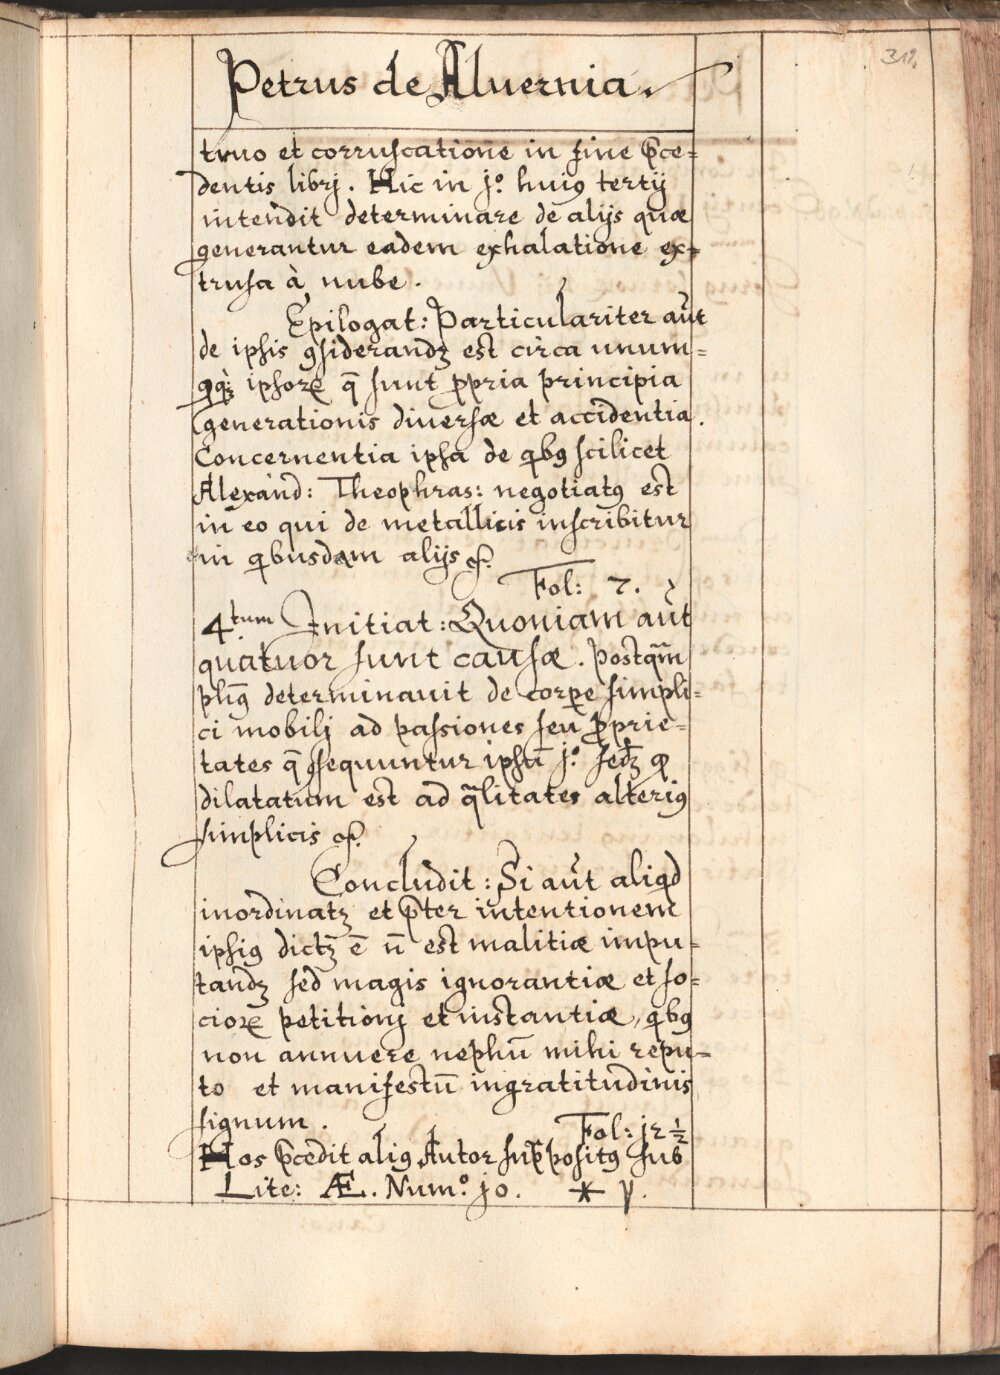 312.
Petrus de Aluernia.
truo et corruscatione in fine p̄ce=
dentis librj. Hic in jº. huiꝰ tertij
intendit determinare de alijs quæ
generantur eadem exhalatione ex=
trusa à nube.
Epilogat: Particulariter aūt
de ipsis ꝯsiderandꝫ est circa unum=
qq̀ꝫ ipsorꝝ q̄ sunt ꝓpria principia
generationis diuersæ et accidentia.
Concernentia ipsa de qbꝰ scilicet
Alexand: Theophras: negotiatꝰ est
in eo qui de metallicis inscribitur
in qbusdam alijs &.
Fol: 7.
4.tum Initiat: Quoniam aūt
quatuor sunt causæ. Postq̄m
phūs determinauit de corꝑe simpli=
ci mobilj ad passiones seu ꝓprie=
tates q̄ sequuntur ipsū jº. sedꝫ qd
dilatatum est ad q̄litates alteriꝰ
simplicis &.
Concludit: Si aūt aliqd
inordinatꝫ et p̄ter intentionem
ipsiꝰ dictꝫ ē n̄ est malitiæ impu=
tandꝫ sed magis ignorantiæ et so=
ciorꝝ petitionj et instantiæ, qbꝰ
non annuere nephū mihi repu=
to et manifestū ingratitudinis
signum.
Fol: j2 ½
Hos p̄cedit aliꝰ Autor sup̄positꝰ sub
Lite: Æ. Num.º j0. * γ.